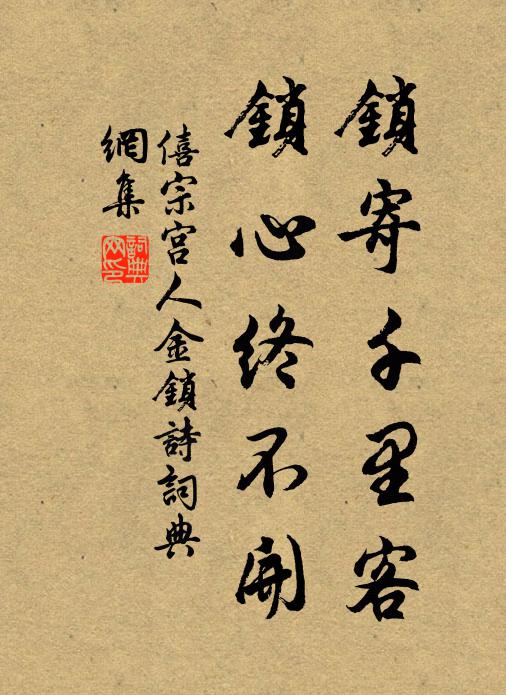 鎖寄千里客
鎖心終不開
僖宗宮人金鎖詩詞典
網集
詞典
网印